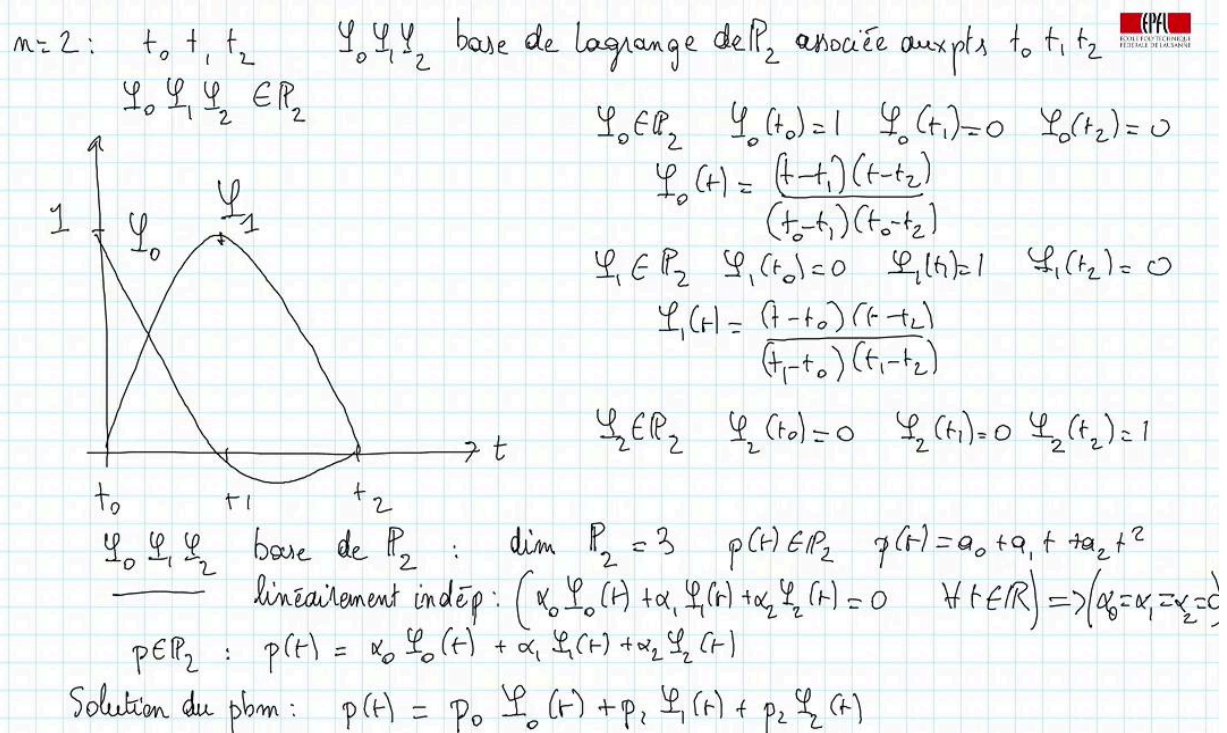 n=2: t₀ t₁ t₂ φ₀ φ₁ φ₂ base de Lagrange de ℙ₂ associée aux pts t₀ t₁ t₂
EPFL
ÉCOLE POLYTECHNIQUE
FÉDÉRALE DE LAUSANNE
φ₀ φ₁ φ₂ ∈ ℙ₂
φ₀ ∈ ℙ₂ φ₀(t₀)=1 φ₀(t₁)=0 φ₀(t₂)=0
φ₀(t) = (t-t₁)(t-t₂) / (t₀-t₁)(t₀-t₂)
φ₁ ∈ ℙ₂ φ₁(t₀)=0 φ₁(t₁)=1 φ₁(t₂)=0
φ₁(t) = (t-t₀)(t-t₂) / (t₁-t₀)(t₁-t₂)
φ₂ ∈ ℙ₂ φ₂(t₀)=0 φ₂(t₁)=0 φ₂(t₂)=1
1 φ₀ φ₁
t
t₀ t1 t₂
φ₀ φ₁ φ₂ base de ℙ₂ : dim ℙ₂ = 3 p(t) ∈ ℙ₂ p(t) = a₀ + a₁ t + a₂ t²
linéairement indép : (α₀ φ₀(t) + α₁ φ₁(t) + α₂ φ₂(t) = 0 ∀ t ∈ ℝ) => (α₀ = α₁ = α₂ = 0
p ∈ ℙ₂ : p(t) = α₀ φ₀(t) + α₁ φ₁(t) + α₂ φ₂(t)
Solution du pbm : p(t) = p₀ φ₀(t) + p₁ φ₁(t) + p₂ φ₂(t)